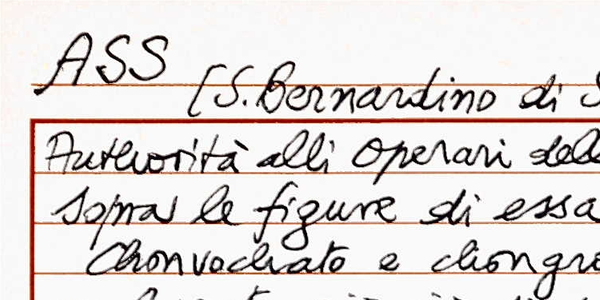 ASS
[S. Bernardino di S
Authorità alli operari del
sopra le figure di essa
Chonvochato e chongre